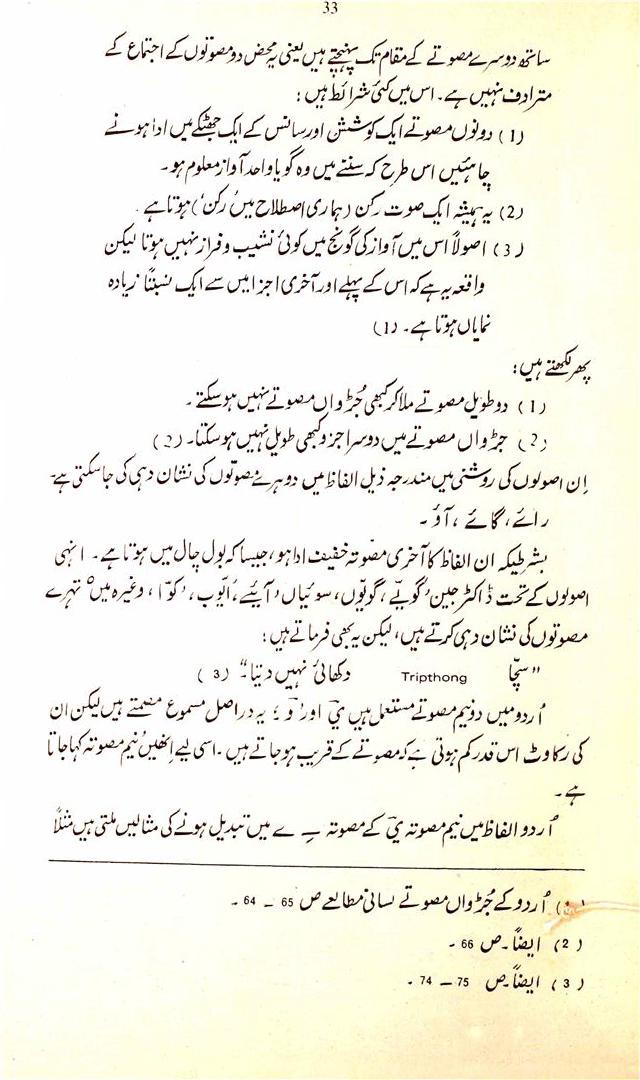 33
ساتھ دوسرے مصوتے کے مقام تک پہنچتے ہیں یعنی یہ محض دو مصوتوں کے اجتماع کے
مترادف نہیں ہے۔ اس میں کئی شرائط ہیں:
(1) دونوں مصوتے ایک کوشش اور سانس کے ایک جھٹکے میں ادا ہونے
چاہئیں اس طرح کہ سننے میں وہ گویا واحد آواز معلوم ہو۔
(2) یہ ہمیشہ ایک صوت رکن (ہماری اصطلاح میں 'رکن') ہوتا ہے۔
(3) اصولاً اس میں آواز کی گونج میں کوئی نشیب و فراز نہیں ہوتا لیکن
واقعہ یہ ہے کہ اس کے پہلے اور آخری اجزا میں سے ایک نسبتاً زیادہ
نمایاں ہوتا ہے۔ (1)
پھر لکھتے ہیں:
(1) دو طویل مصوتے ملا کر کبھی جُڑواں مصوتے نہیں ہو سکتے۔
(2) جڑواں مصوتے میں دوسرا جزو کبھی طویل نہیں ہو سکتا۔ (2)
اِن اصولوں کی روشنی میں مندرجہ ذیل الفاظ میں دوہرے مصوتوں کی نشان دہی کی جاسکتی ہے۔
رائے، گائے، آؤ۔
بشرطیکہ ان الفاظ کا آخری مصوتہ خفیف ادا ہو، جیسا کہ بول چال میں ہوتا ہے۔ انہی
اصولوں کے تحت ڈاکٹر جین 'گویے'، گویوں، سوئیاں، آیئے، ایوب، 'کوّا'، وغیرہ میں تہرے
مصوتوں کی نشان دہی کرتے ہیں، لیکن یہ بھی فرماتے ہیں:
"سچّا Tripthong دکھائی نہیں دیتا"۔ (3)
اُردو میں دو نیم مصوتے مستعمل ہیں 'ی' اور 'و'؛ یہ دراصل مسموع مصمتے ہیں لیکن ان
کی رکاوٹ اس قدر کم ہوتی ہے کہ مصوتے کے قریب ہو جاتے ہیں۔ اسی لیے انھیں نیم مصوتہ کہا جاتا
ہے۔
اُردو الفاظ میں نیم مصوتہ ی کے مصوتہ ــِ ے میں تبدیل ہونے کی مثالیں ملتی ہیں مثلاً
(1) اُردو کے جُڑواں مصوتے لسانی مطالعے ص 65 – 64۔
(2) ایضاً۔ ص 66۔
(3) ایضاً۔ ص 75 – 74۔